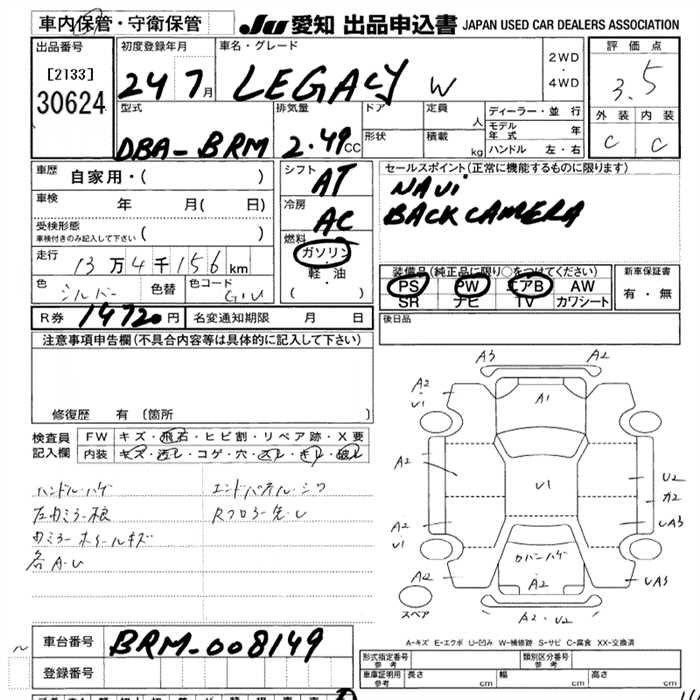 車内保管・守衛保管
JU 愛知 出品申込書 JAPAN USED CAR DEALERS ASSOCIATION
出品番号 初度登録年月 車名・グレード 2WD・4WD 評価点
[2133]
30624
24 7月 LEGACY W 3.5
型式 排気量 ドア 定員 人 ディーラー・並行 外装 内装
DBA-BRM 2.49CC 形状 積載 kg モデル年式 年 C C
ハンドル 左・右
車歴 自家用・( ) シフト AT セールスポイント(正常に機能するものに限ります)
車検 年 月( 日) 冷房 AC NAVi
BACK CAMERA
受検形態 車検付きのみ記入して下さい ( ) 燃料 ガソリン・軽油 ( )
走行 13万4千156km
装備品(純正品に限り○をつけてください) 新車保証書
色 シルバー 色替 色コード G1U PS PW エアB AW 有・無
SR ナビ TV カワシート
R券 14720円 名変通知期限 月 日 後日品
注意事項申告欄(不具合内容等は具体的に記入して下さい)
修復歴 有 〔箇所 〕
検査員記入欄 FW キズ・飛石・ヒビ割・リペア跡・X要
内装 キズ・汚レ・コゲ・穴・スレ・キレ・破レ
ハンドル・ハゲ
各A・U
A3 A2
A2 U1 A1 A2
A2 U1 U2
A2 U1 UA3
A2 A2 UA3
スペア A2・U2
A-キズ E-エクボ U-凹み W-補修跡 S-サビ C-腐食 XX-交換済
車台番号 BRM-008149
登録番号
形式指定番号 参考 類別区分番号 参考
車庫証明用 参考 長さ cm 幅 cm 高さ cm